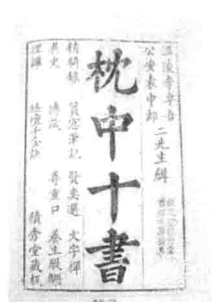 溫陵李卓吾
公安袁中郎
二先生輯
枕中十書
精騎錄 篔窓筆記 賢奕選 文字禪
異史 博識 尊重口 養生醍醐
理譚 騷壇千金訣 積秀堂藏板